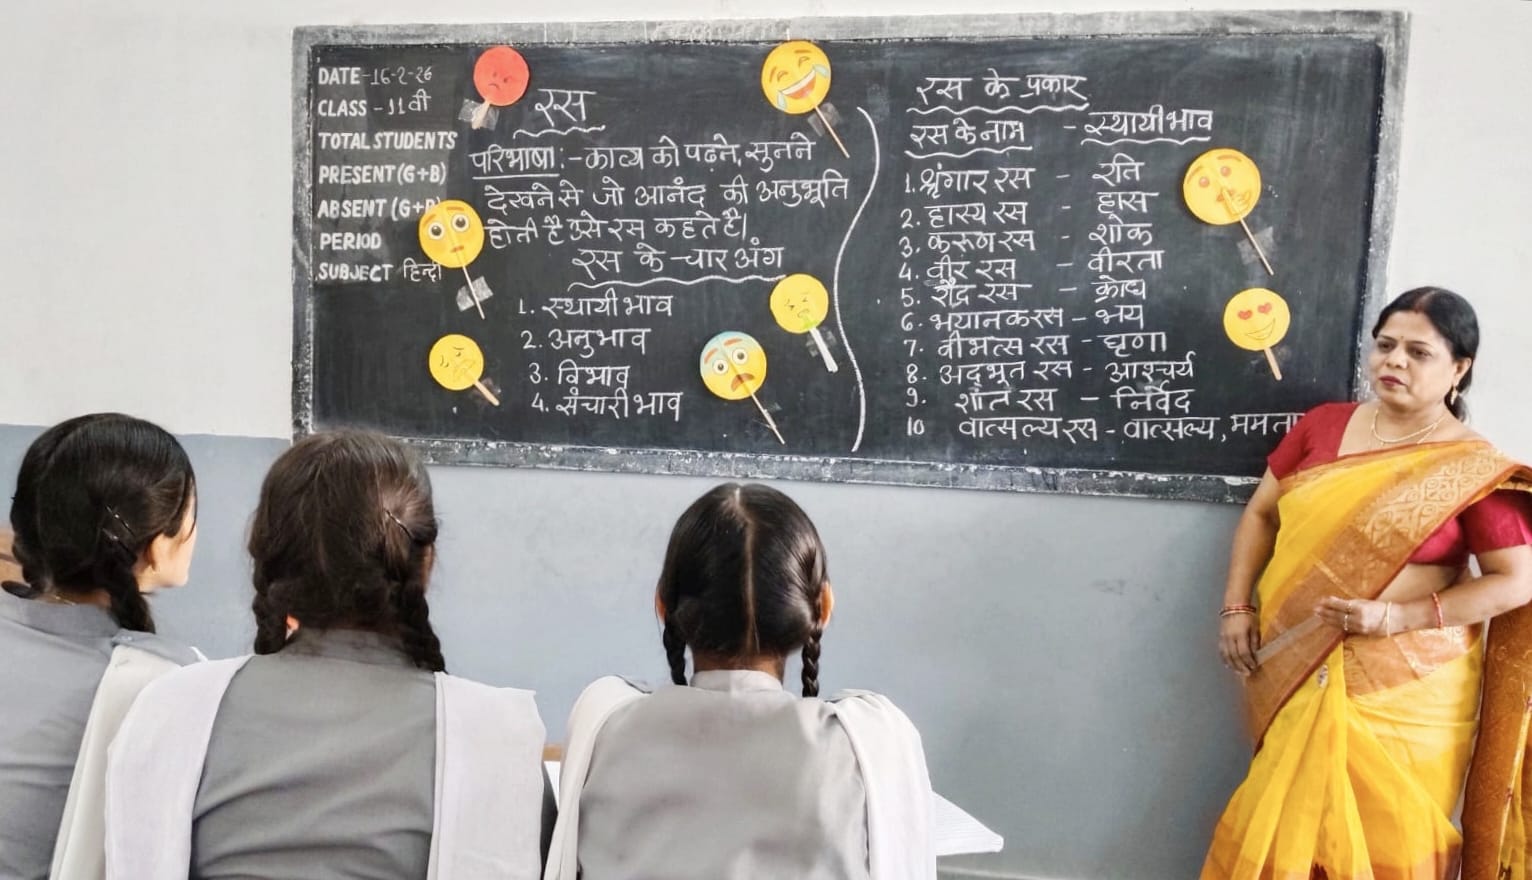 DATE -16-2-26
CLASS - 11वी
TOTAL STUDENTS
PRESENT (G+B)
ABSENT (G+B)
PERIOD
SUBJECT हिन्दी
रस
परिभाषा :- काव्य को पढ़ने, सुनने
देखने से जो आनंद की अनुभूति
होती है उसे रस कहते है।
रस के चार अंग
1. स्थायी भाव
2. अनुभाव
3. विभाव
4. संचारी भाव
रस के प्रकार
रस के नाम - स्थायी भाव
1. श्रृंगार रस - रति
2. हास्य रस - हास
3. करुण रस - शोक
4. वीर रस - वीरता
5. रौद्र रस - क्रोध
6. भयानक रस - भय
7. वीभत्स रस - घृणा
8. अद्भुत रस - आश्चर्य
9. शांत रस - निर्वेद
10 वात्सल्य रस - वात्सल्य, ममता